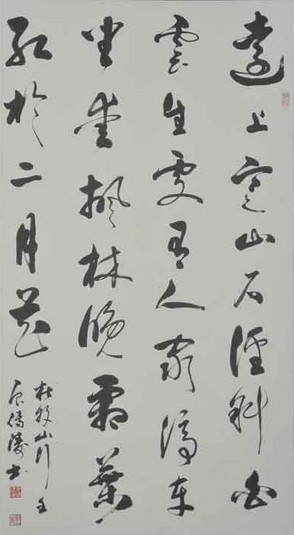 遠上寒山石徑斜白
雲生處有人家停車
坐愛楓林晚霜葉
紅於二月花
杜牧山行 王
濤書